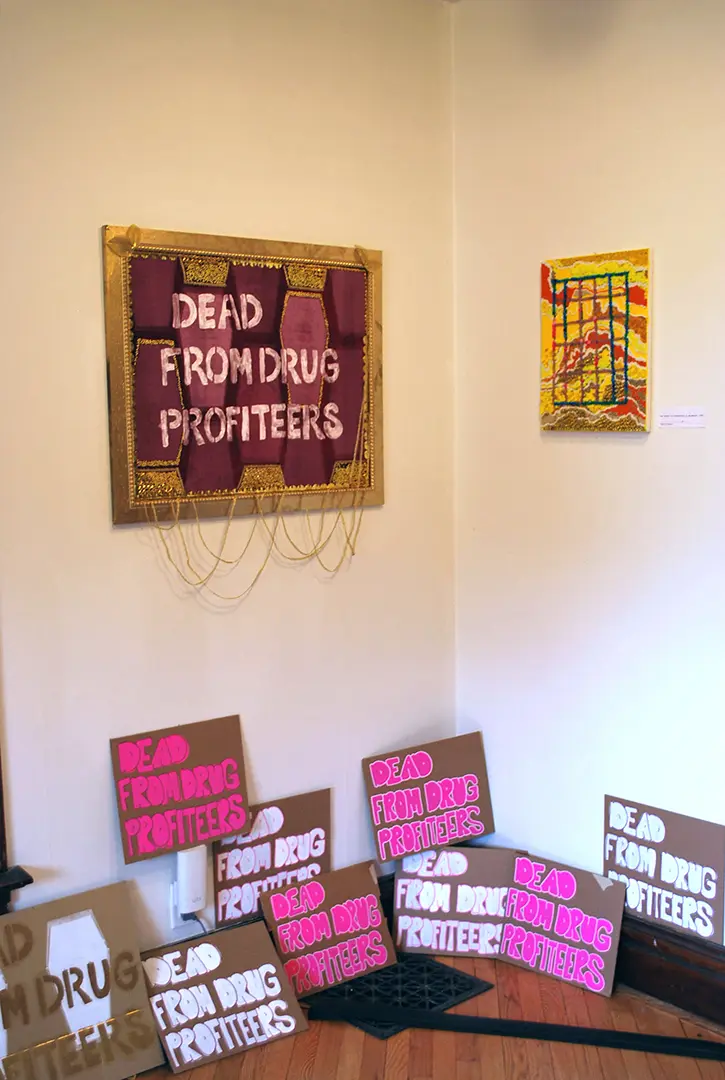 DEAD
FROM DRUG
PROFITEERS
DEAD
FROM DRUG
PROFITEERS
DEAD
FROM DRUG
PROFITEERS
DEAD
FROM DRUG
PROFITEERS
DEAD
FROM DRUG
PROFITEERS
DEAD
FROM DRUG
PROFITEERS
DEAD
FROM DRUG
PROFITEERS
DEAD
FROM DRUG
PROFITEERS
AD
M DRUG
ITEERS
DEAD
FROM DRUG
PROFITEERS